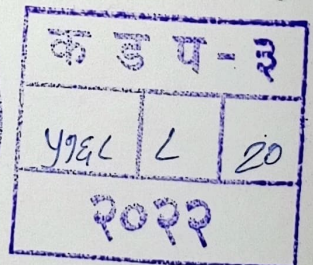 क ड प - ३
५१६८ ८ २०
२०२२